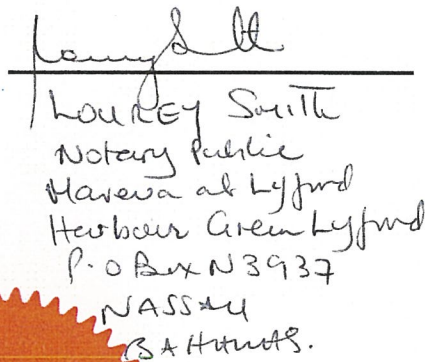 LOUREY Smith
Notary Public
Mareva at Lyford
Harbour Green Lyford
P.O Box N3937
NASSAU
BAHAMAS.